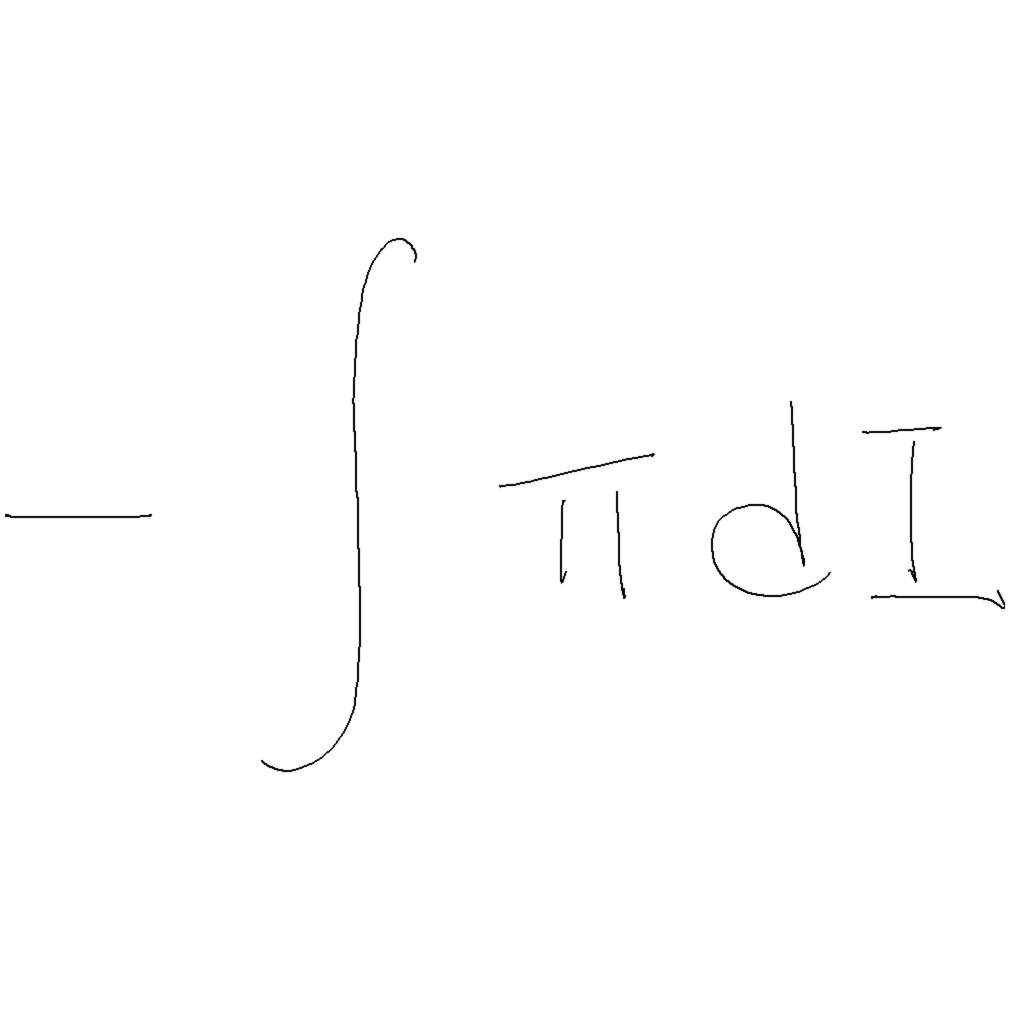 − ∫ π d I